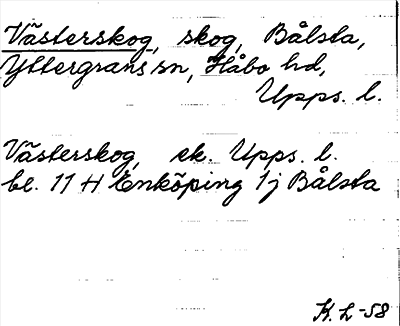 Västerskog, skog, Bålsta,
Yttergrans sn, Håbo hd,
Upps. l.
Västerskog, ek. Upps. l.
bl. 11 H Enköping 1j Bålsta
K. L -58